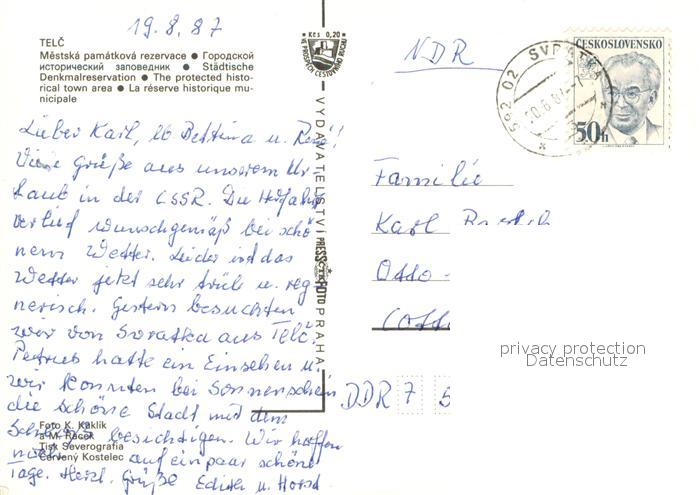 19.8.87
TELČ
Městská památková rezervace ● Городской
исторический заповедник ● Städtische
Denkmalreservation ● The protected histo-
rical town area ● La réserve historique mu-
nicipale
Kčs 0,20
VE PROSPĚCH CESTOVNÍHO RUCHU
NDR
562 02 SVRATKA
ČESKOSLOVENSKO
50h
Lieber Karl, lb Bettina u. René!
Viele Grüße aus unserem Ur
laub in der CSSR. Die Hinfahrt
verlief wunschgemäß bei schö
nem Wetter. Leider ist das
Wetter jetzt sehr trüb u. reg
nerisch. Gestern besuchten
wir von Svratka aus Telč.
Petrus hatte ein Einsehen u.
wir konnten bei Sonnenschein
die schöne Stadt mit dem
Schloß besichtigen. Wir hoffen
noch auf ein paar schöne
Tage. Herzl. Grüße Edith u. Horst
VYDAVATELSTVÍ PRESSFOTO PRAHA
Familie
Karl
Otto-
DDR 7 5
Foto K. Kaklík
a M. Raček
Tisk Severografia
Červený Kostelec
privacy protection
Datenschutz